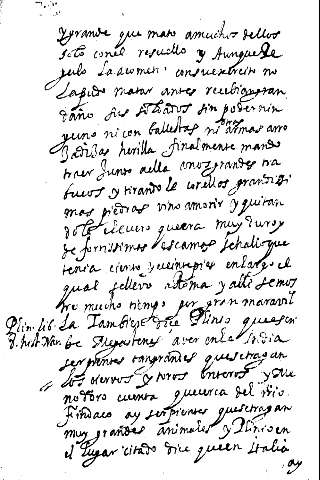 y grande que mato a muchos dellos
solo con el resuello y Aunque Re
gulo La acometi con su exercito no
La pudo matar antes recibia gran
daño sus soldados sin poder nin
guno ni con ballestas ni otras armas arro
jadisas herilla finalmente mando
traer Junto a ella unos grandes tra
bucos y tirandole con ellos grandisi
mas piedras vino a morir y quitan
dole el cuero que era muy duro y
de fortissimas escamas se hallo que
tenia ciento y veinte pies en largo el
qual se llevo a Roma y alli se mos
tro mucho tiempo por gran maravil
Plin. lib. La Tambien dice Plinio que escri
8. hist. Nat. be Megastenes aver en la India
serpientes tan grandes que se tragan
los ciervos y toros enteros y Me
nodoro cuenta que cerca del Rio
Rindaco ay serpientes que se tragan
muy grandes animales y Plinio en
el Lugar citado dice que en Italia
ay